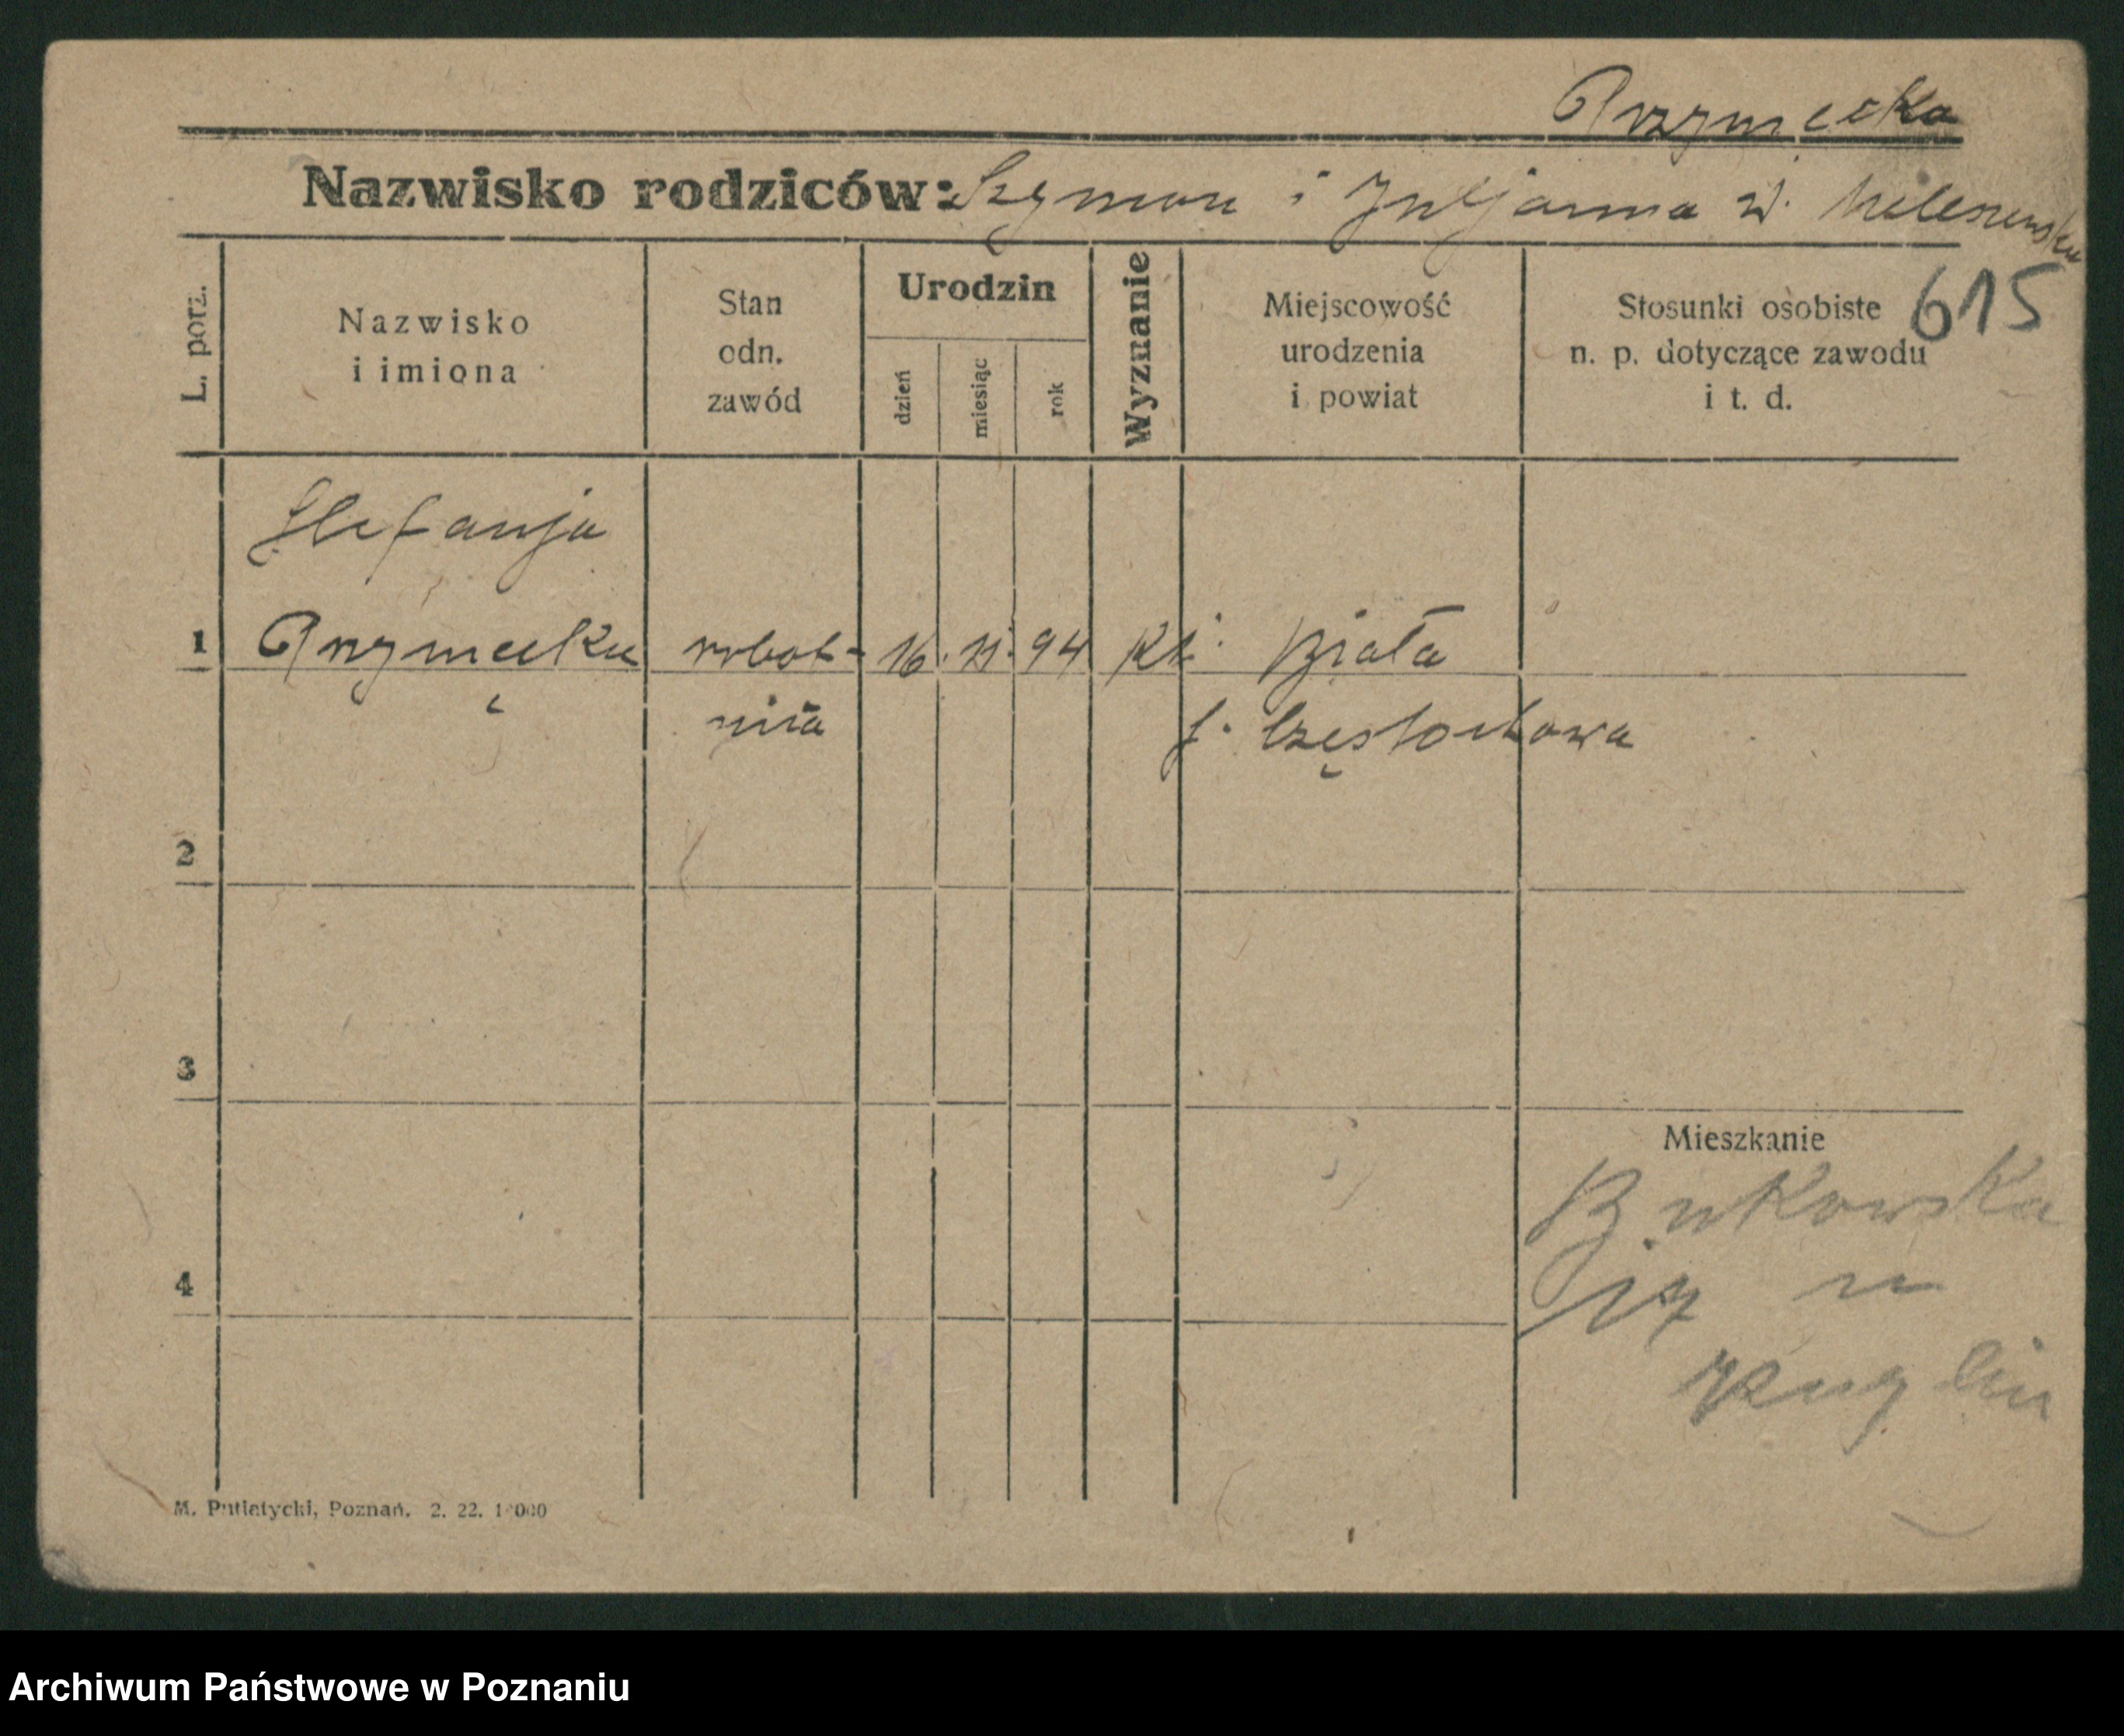 Przymecka
Nazwisko rodziców: Szymon i Juljanna z d.
615
L. porz.
Nazwisko i imiona
Stan odn. zawód
Urodzin
dzień
miesiąc
rok
Wyznanie
Miejscowość urodzenia i powiat
Stosunki osobiste n. p. dotyczące zawodu i t. d.
Stefanja
1 Przymecka robot- 16. 11. 94 kt. Biała
nica p. Częstochowa
2
3
Mieszkanie
Bukowska
4
17 u
M. Putiatycki, Poznań. 2. 22. 1 000
Archiwum Państwowe w Poznaniu